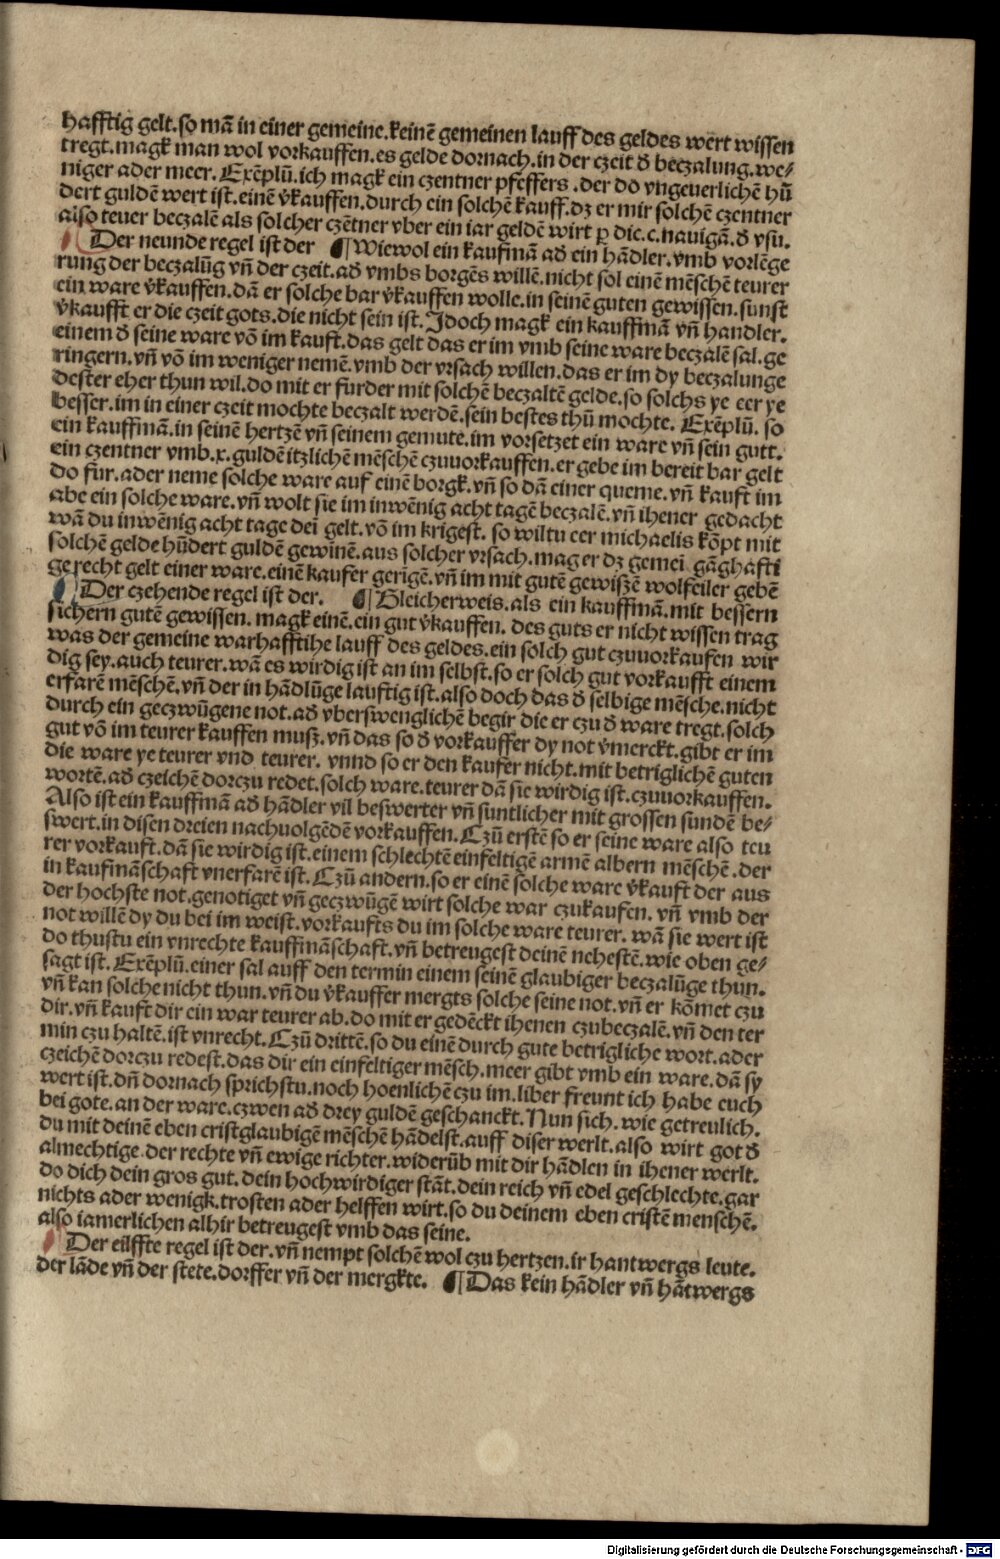 hafftig gelt.so mā in einer gemeine.keinē gemeinen lauff des geldes wert wissen
tregt.magk man wol vorkauffen.es gelde dornach.in der czeit đ beczalung.we⸗
niger ader meer. Exēplū.ich magk ein czentner pfeffers .der do vngeuerlichē hū
dert guldē wert ist.einē v̄kauffen.durch ein solchē kauff.dz er mir solchē czentner
also teuer beczalē als solcher czētner vber ein iar geldē wirt ꝑ dic.c.nauigā.đ vsu.
Der neunde regel ist der ¶ Wiewol ein kaufmā ađ ein hādler.vmb vorlēge
rung der beczalūg vn̄ der czeit.ađ vmbs borgēs willē.nicht sol einē mēschē teurer
ein ware v̄kauffen.dā er solche bar v̄kauffen wolle.in seinē guten gewissen.sunst
v̄kaufft er die czeit gots.die nicht sein ist. Idoch magk ein kauffmā vn̄ handler.
einem đ seine ware vō im kauft.das gelt das er im vmb seine ware beczalē sal.ge
ringern.vn̄ vō im weniger nemē.vmb der vrsach willen.das er im dy beczalunge
dester eher thun wil.do mit er furder mit solchē beczaltē gelde.so solchs ye eer ye
besser.im in einer czeit mochte beczalt werdē.sein bestes thū mochte. Exēplū. so
ein kauffmā.in seinē hertzē vn̄ seinem gemute.im vorsetzet ein ware vn̄ sein gutt.
ein czentner vmb.x.guldē itzlichē mēschē czuuorkauffen.er gebe im bereit bar gelt
do fur.ader neme solche ware auf einē borgk.vn̄ so dā einer queme.vn̄ kauft im
abe ein solche ware.vn̄ wolt sie im inwēnig acht tagē beczalē.vn̄ ihener gedacht
wā du inwēnig acht tage dei gelt.vō im krigest. so wiltu eer michaelis kōpt mit
solchē gelde hūdert guldē gewinē.aus solcher vrsach.mag er dz gemei gāghafti
ge recht gelt einer ware.einē kaufer gerigē.vn̄ im mit gutē gewißē wolfeiler gebē
Der czehende regel ist der. ¶ Gleicherweis.als ein kauffmā.mit bessern
sichern gutē gewissen. magk einē.ein gut v̄kauffen. des guts er nicht wissen trag
was der gemeine warhafftihe lauff des geldes.ein solch gut czuuorkaufen wir
dig sey.auch teurer.wā es wirdig ist an im selbst.so er solch gut vorkaufft einem
erfarē mēschē.vn̄ der in hādlūge lauftig ist.also doch das đ selbige mēsche.nicht
durch ein geczwūgene not.ađ vberswenglichē begir die er czu đ ware tregt.solch
gut vō im teurer kauffen muß.vn̄ das so đ vorkauffer dy not v̄merckt.gibt er im
die ware ye teurer vnd teurer. vnnd so er den kaufer nicht.mit betriglichē guten
wortē.ađ czeichē dorczu redet.solch ware.teurer dā sie wirdig ist.czuuorkauffen.
Also ist ein kauffmā ađ hādler vil beswerter vn̄ suntlicher mit grossen sundē be⸗
swert.in disen dreien nachuolgēdē vorkauffen.Czū erstē so er seine ware also teu
rer vorkauft.dā sie wirdig ist.einem schlechtē einfeltigē armē albern mēschē .der
in kaufmāschaft vnerfarē ist.Czū andern.so er einē solche ware v̄kauft der aus
der hochste not.genotiget vn̄ geczwūgē wirt solche war czukaufen. vn̄ vmb der
not willē dy du bei im weist.vorkaufts du im solche ware teurer. wā sie wert ist
do thustu ein vnrechte kauffmāschaft.vn̄ betreugest deinē nehestē.wie oben ge⸗
sagt ist. Exēplū.einer sal auff den termin einem seinē glaubiger beczalūge thun.
vn̄ kan solche nicht thun.vn̄ du v̄kauffer mergts solche seine not.vn̄ er kōmet czu
dir.vn̄ kauft dir ein war teurer ab.do mit er gedēckt ihenen czubeczalē.vn̄ den ter
min czu haltē.ist vnrecht.Czū drittē.so du einē durch gute betrigliche wort.ader
czeichē dorczu redest.das dir ein einfeltiger mēsch.meer gibt vmb ein ware.dā sy
wert ist.dn̄ dornach sprichstu.noch hoenlichē czu im.liber freunt ich habe euch
bei gote.an der ware.czwen ađ drey guldē geschanckt. Nun sich. wie getreulich.
du mit deinē eben cristglaubigē mēschē hādelst.auff diser werlt.also wirt got đ
almechtige.der rechte vn̄ ewige richter.widerūb mit dir hādlen in ihener werlt.
do dich dein gros gut.dein hochwirdiger stāt.dein reich vn̄ edel geschlechte.gar
nichts ader wenigk.trosten ader helffen wirt.so du deinem eben cristē menschē.
also iamerlichen alhir betreugest vmb das seine.
Der eilffte regel ist der.vn̄ nempt solchē wol czu hertzen.ir hantwergs leute.
der lāde vn̄ der stete.dorffer vn̄ der mergkte. ¶ Das kein hādler vn̄ hātwergs
Digitalisierung gefördert durch die Deutsche Forschungsgemeinschaft - DFG